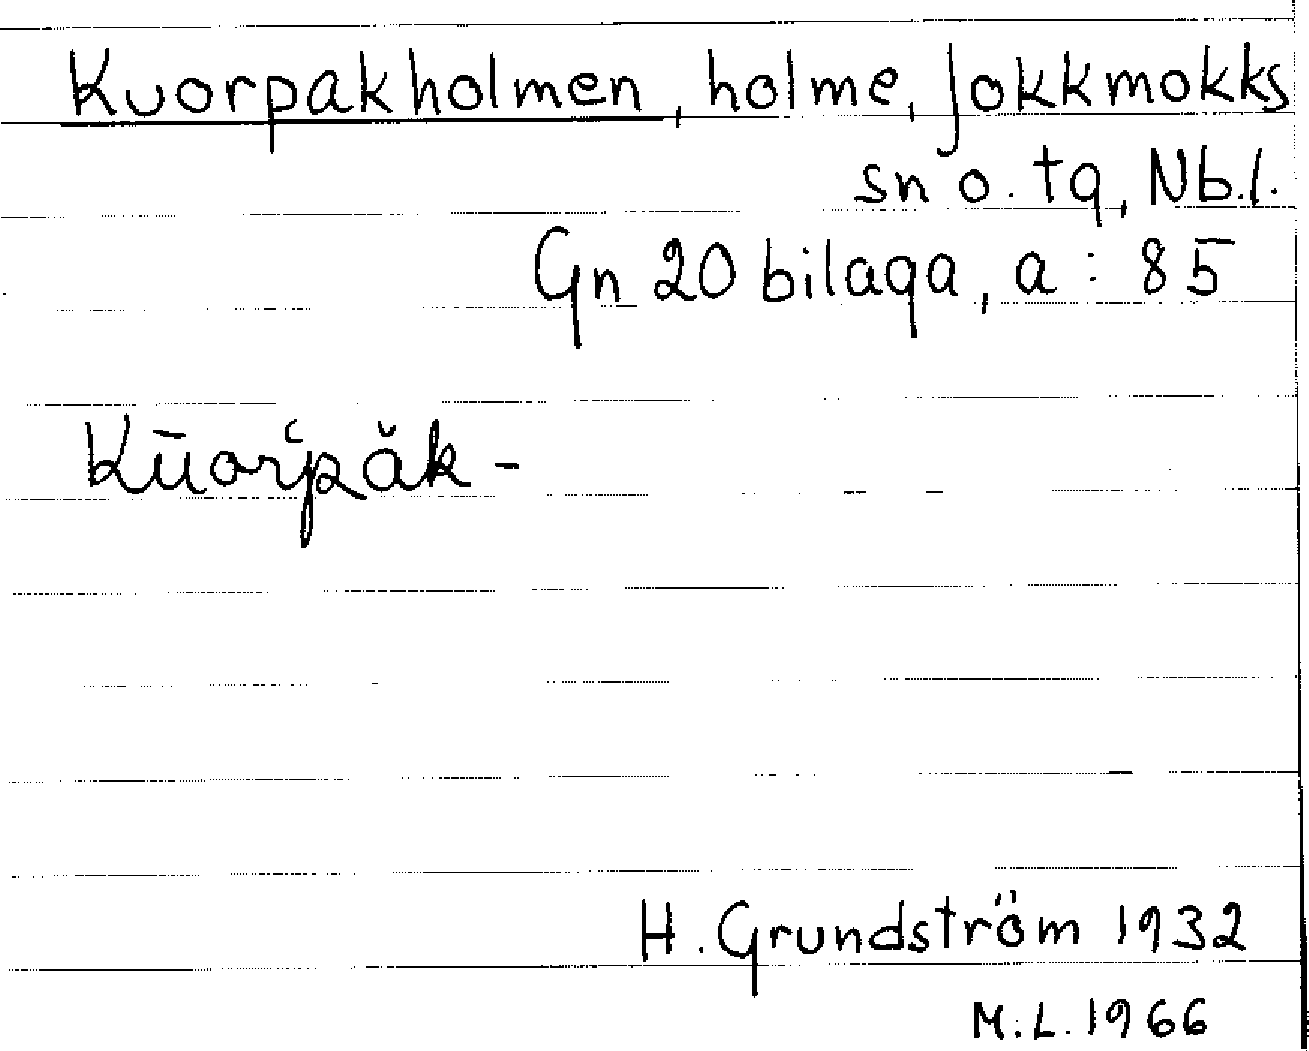 Kuorpakholmen, holme, Jokkmokks
sn o. tg, Nb.l.
Gn 20 bilaga, a : 85
Kūorʿpăk-
H. Grundström 1932
M.L. 1966